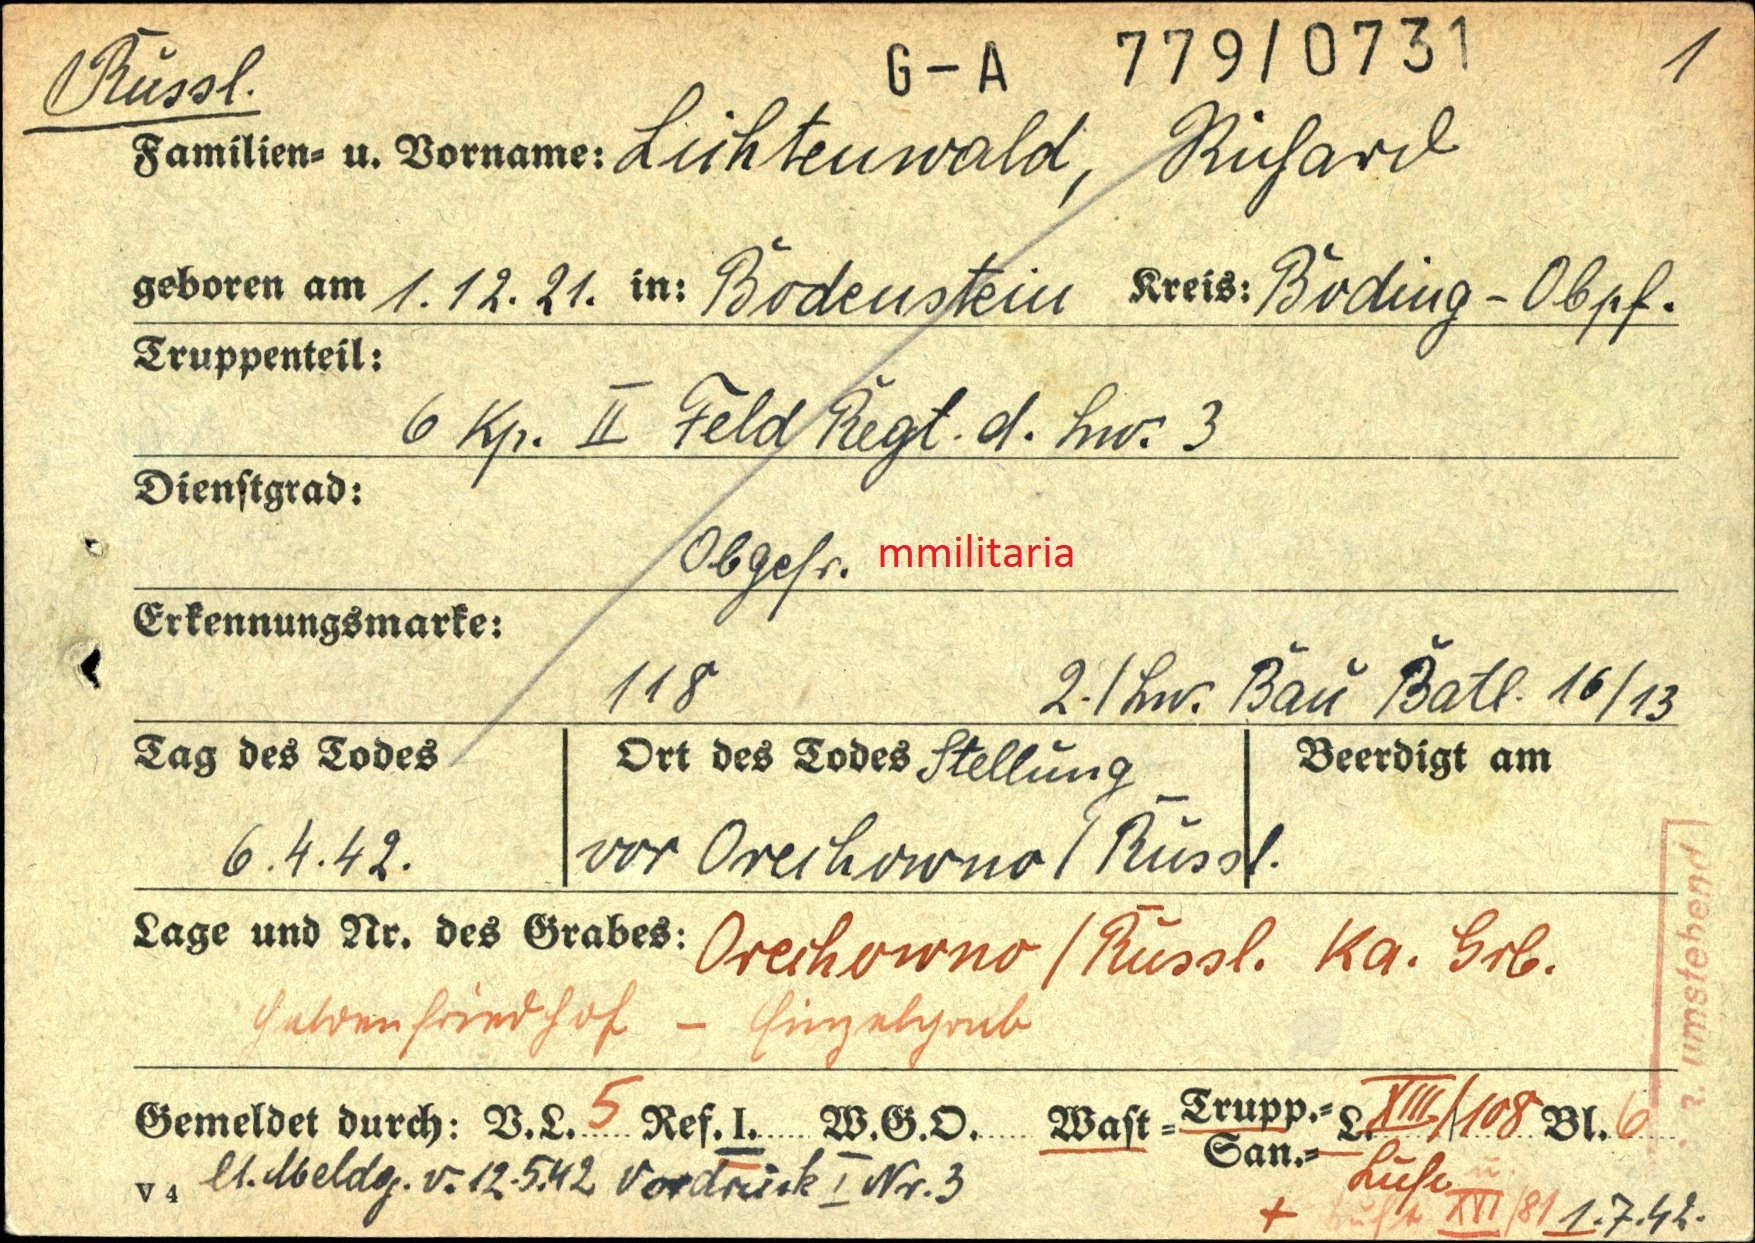 Russl.
G-A 779/0731
1
Familien- u. Vorname: Lichtenwald, Richard
geboren am 1.12.21. in: Bodenstein Kreis: Roding - Obpf.
Truppenteil:
6 Kp. II Feld Regt. d. Lw. 3
Dienstgrad:
Obgefr. mmilitaria
Erkennungsmarke:
118 2./Lw. Bau Batl. 16/13
Tag des Todes Ort des Todes Stellung Beerdigt am
6.4.42. vor Orechowno / Russl.
Lage und Nr. des Grabes: Orechowno / Russl. Ka. Grb.
Heldenfriedhof - Einzelgrab
Gemeldet durch: V.L. 5 Ref. I. W.G.O. Wast - Trupp.- L. XIII/108 Bl. 6
San.- Luft
V 4 lt. Meldg. v. 12.5.42 Vordruck I Nr. 3
+ Luft XVI/81 1.7.42.
umstehend